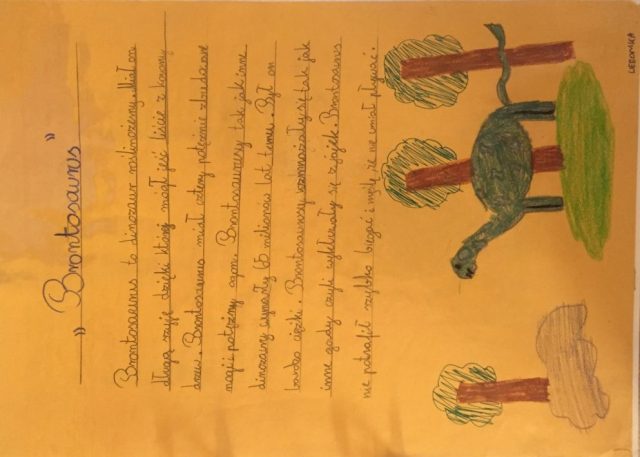 „Brontosaurus”
Brontosaurus to dinozaur roślinożerny. Miał on
długą szyję dzięki której mógł jeść liście z korony
drzew. Brontosaurus miał cztery potężne
nogi i potężny ogon. Brontosaurusy tak jak inne
dinozaury wymarły 65 milionów lat temu. Był on
bardzo ciężki. Brontosaurusy rozmnażały się tak jak
inne gady czyli wykluwały się z jajek. Brontosaurus
nie potrafił szybko biegać i myślę że nie umiał pływać.